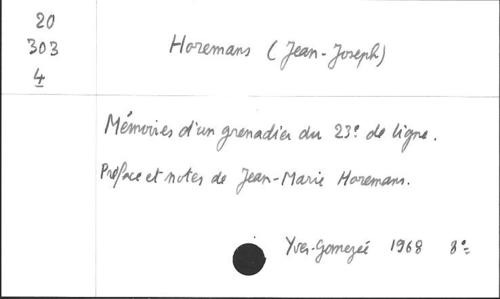 20
303
4
Horemans (Jean-Joseph)
Mémoires d'un grenadier du 23e de ligne.
Préface et notes de Jean-Marie Horemans.
Yves-Gomezée 1968 8°